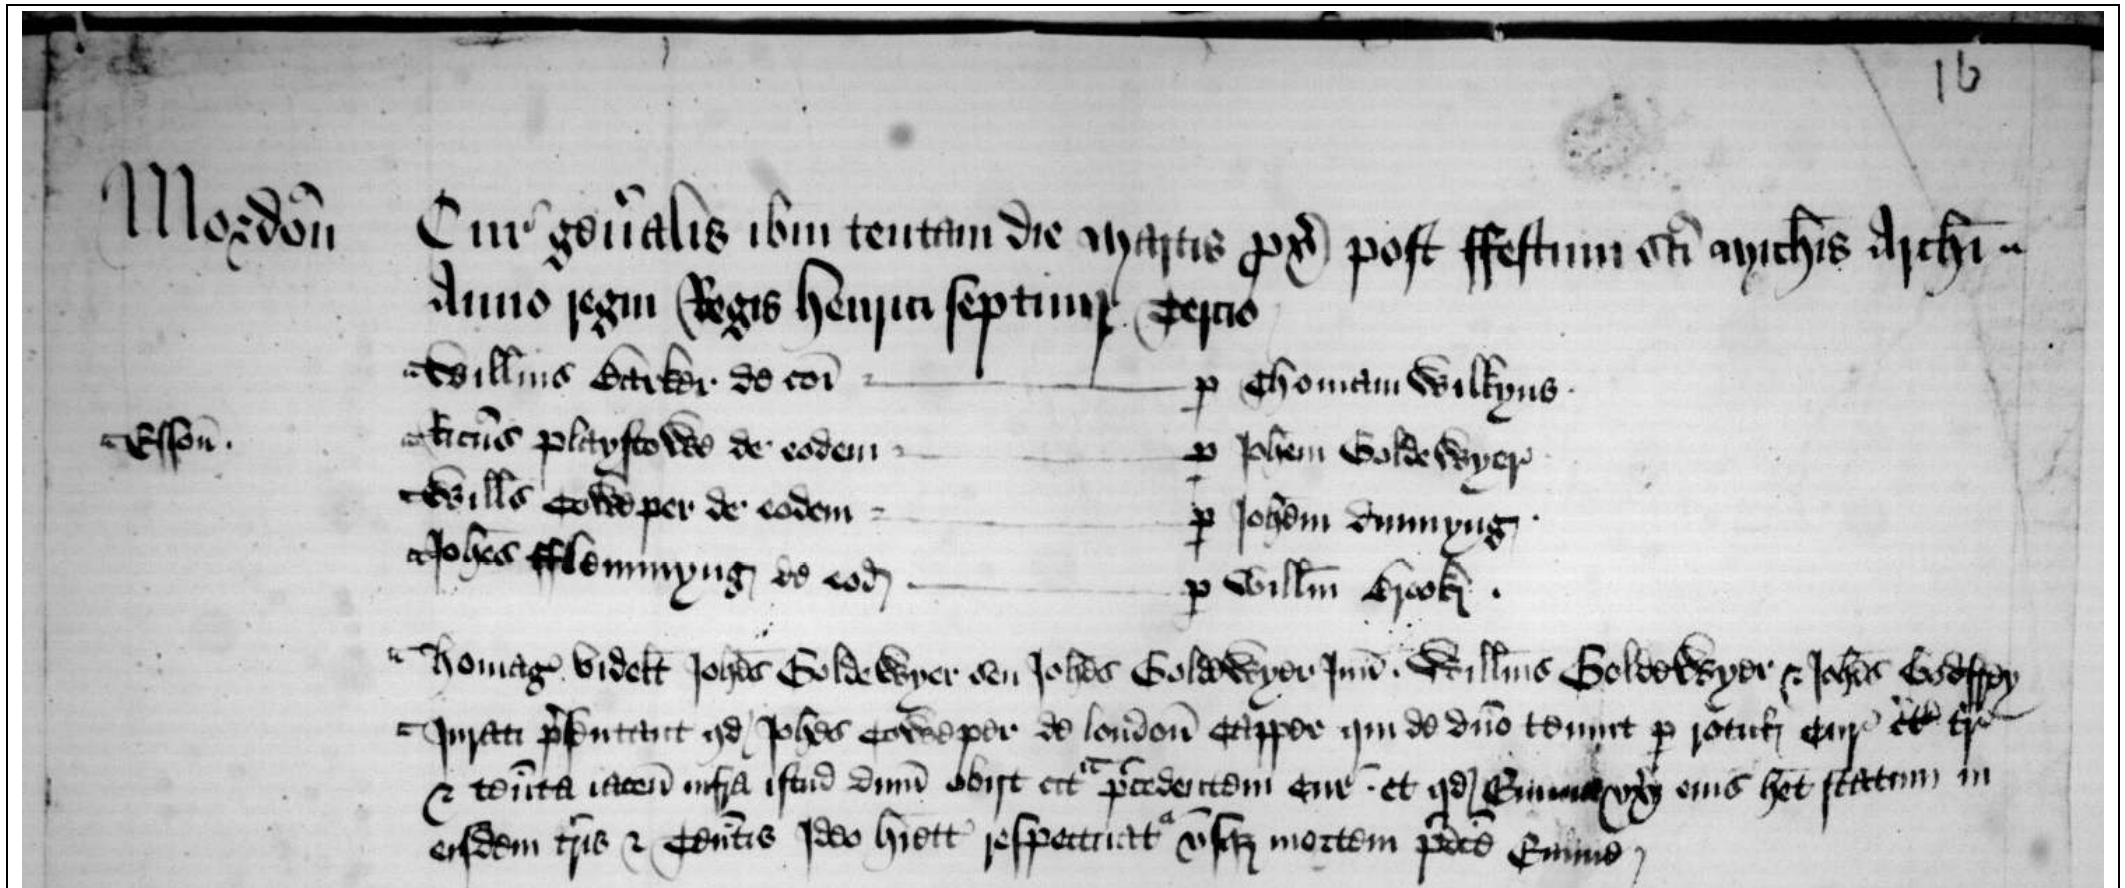 16
Mordoñ Cur̃ genalis ibm tentam die martis px̃ post ffestum sc̃i Mich̃is Arch̃i
Anno regni Regis Henrici septimi Tercio
Willm̃s Barker de coĩ p Thomam Wilkyns
Esson̄. Ric̃us Playstowe de eodem p Joh̃em Goldewyer
Will̃s Cowper de eodem p Joh̃em
Joh̃es fflemmyng de eod p Will̃m Brook
Homag videlt Joh̃es Goldewyer sen Joh̃es Goldewyer Juñ. Willm̃s Goldewyer & Joh̃es Godffrey
Jurati p̃sentant qd Joh̃es Cowper de london̄ Capper qui de dño tenuit p rotul Cur̃ c̃t tr̃
& teñta iaceñ infra istud dñiũ obijt cit̃ p̃cedentem Cur̃. et qd Emma ux̃ eius het statum in
eisdem tr̃is & Teñtis Ideo h̃iett respectuatr usq mortem p̃dce Emme